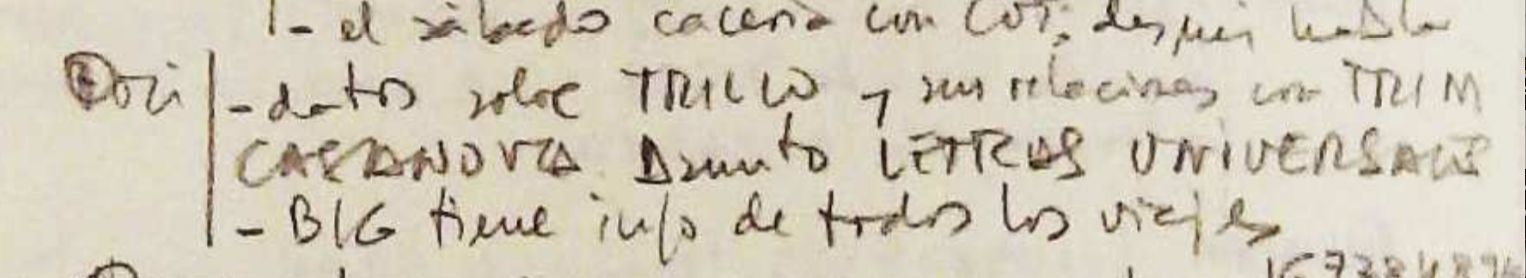 - el sábado cacería con COT; después habla
- datos sobre TRILLO y sus relaciones con TRIM
CASANOVA Asunto LETRAS UNIVERSALES
- BIG tiene info de todos los viajes